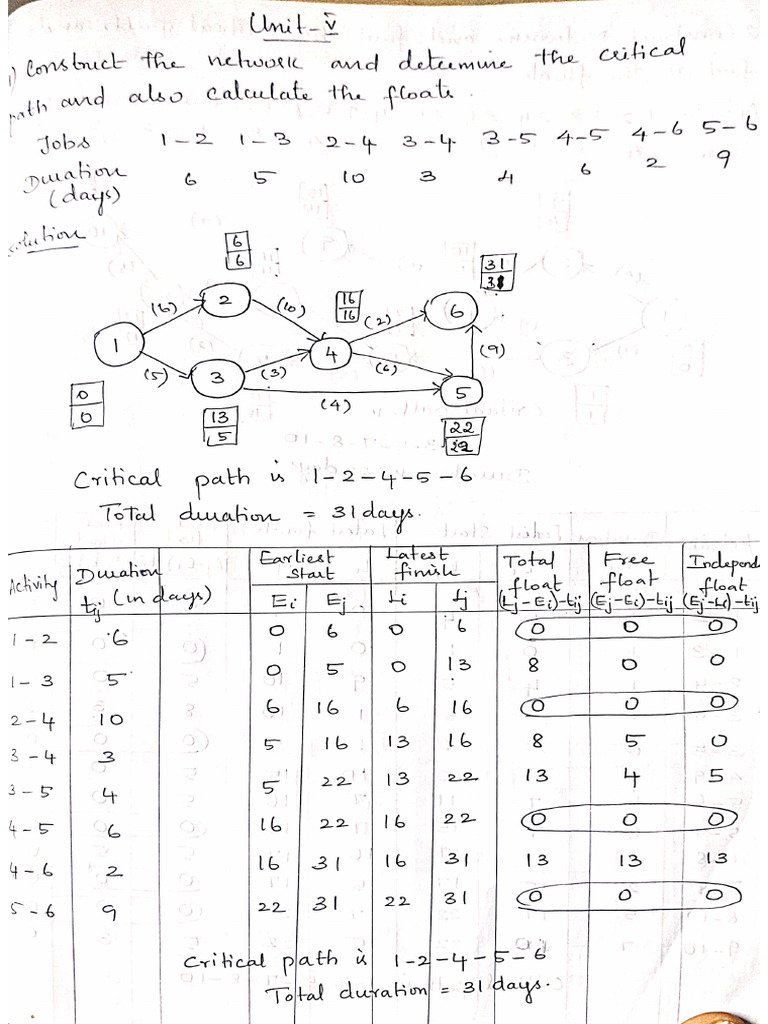 Unit-V
1) Construct the network and determine the critical
path and also calculate the floats.
Jobs 1-2 1-3 2-4 3-4 3-5 4-5 4-6 5-6
Duration 6 5 10 3 4 6 2 9
(days)
Solution
6
6
31
31
16
16
2
(6)
(10)
(2)
6
1
4
(9)
(5)
3
(3)
(6)
5
(4)
0
0
13
5
22
22
Critical path is 1-2-4-5-6
Total duration = 31 days.
Activity Duration tij (in days) Earliest start Latest finish Total float Free float Independ float
Ei Ej Li Lj (Lj-Ei)-tij (Ej-Ei)-tij (Ej-Li)-tij
1-2 6 0 6 0 6 0 0 0
1-3 5 0 5 0 13 8 0 0
2-4 10 6 16 6 16 0 0 0
3-4 3 5 16 13 16 8 5 0
3-5 4 5 22 13 22 13 4 5
4-5 6 16 22 16 22 0 0 0
4-6 2 16 31 16 31 13 13 13
5-6 9 22 31 22 31 0 0 0
Critical path is 1-2-4-5-6
Total duration = 31 days.